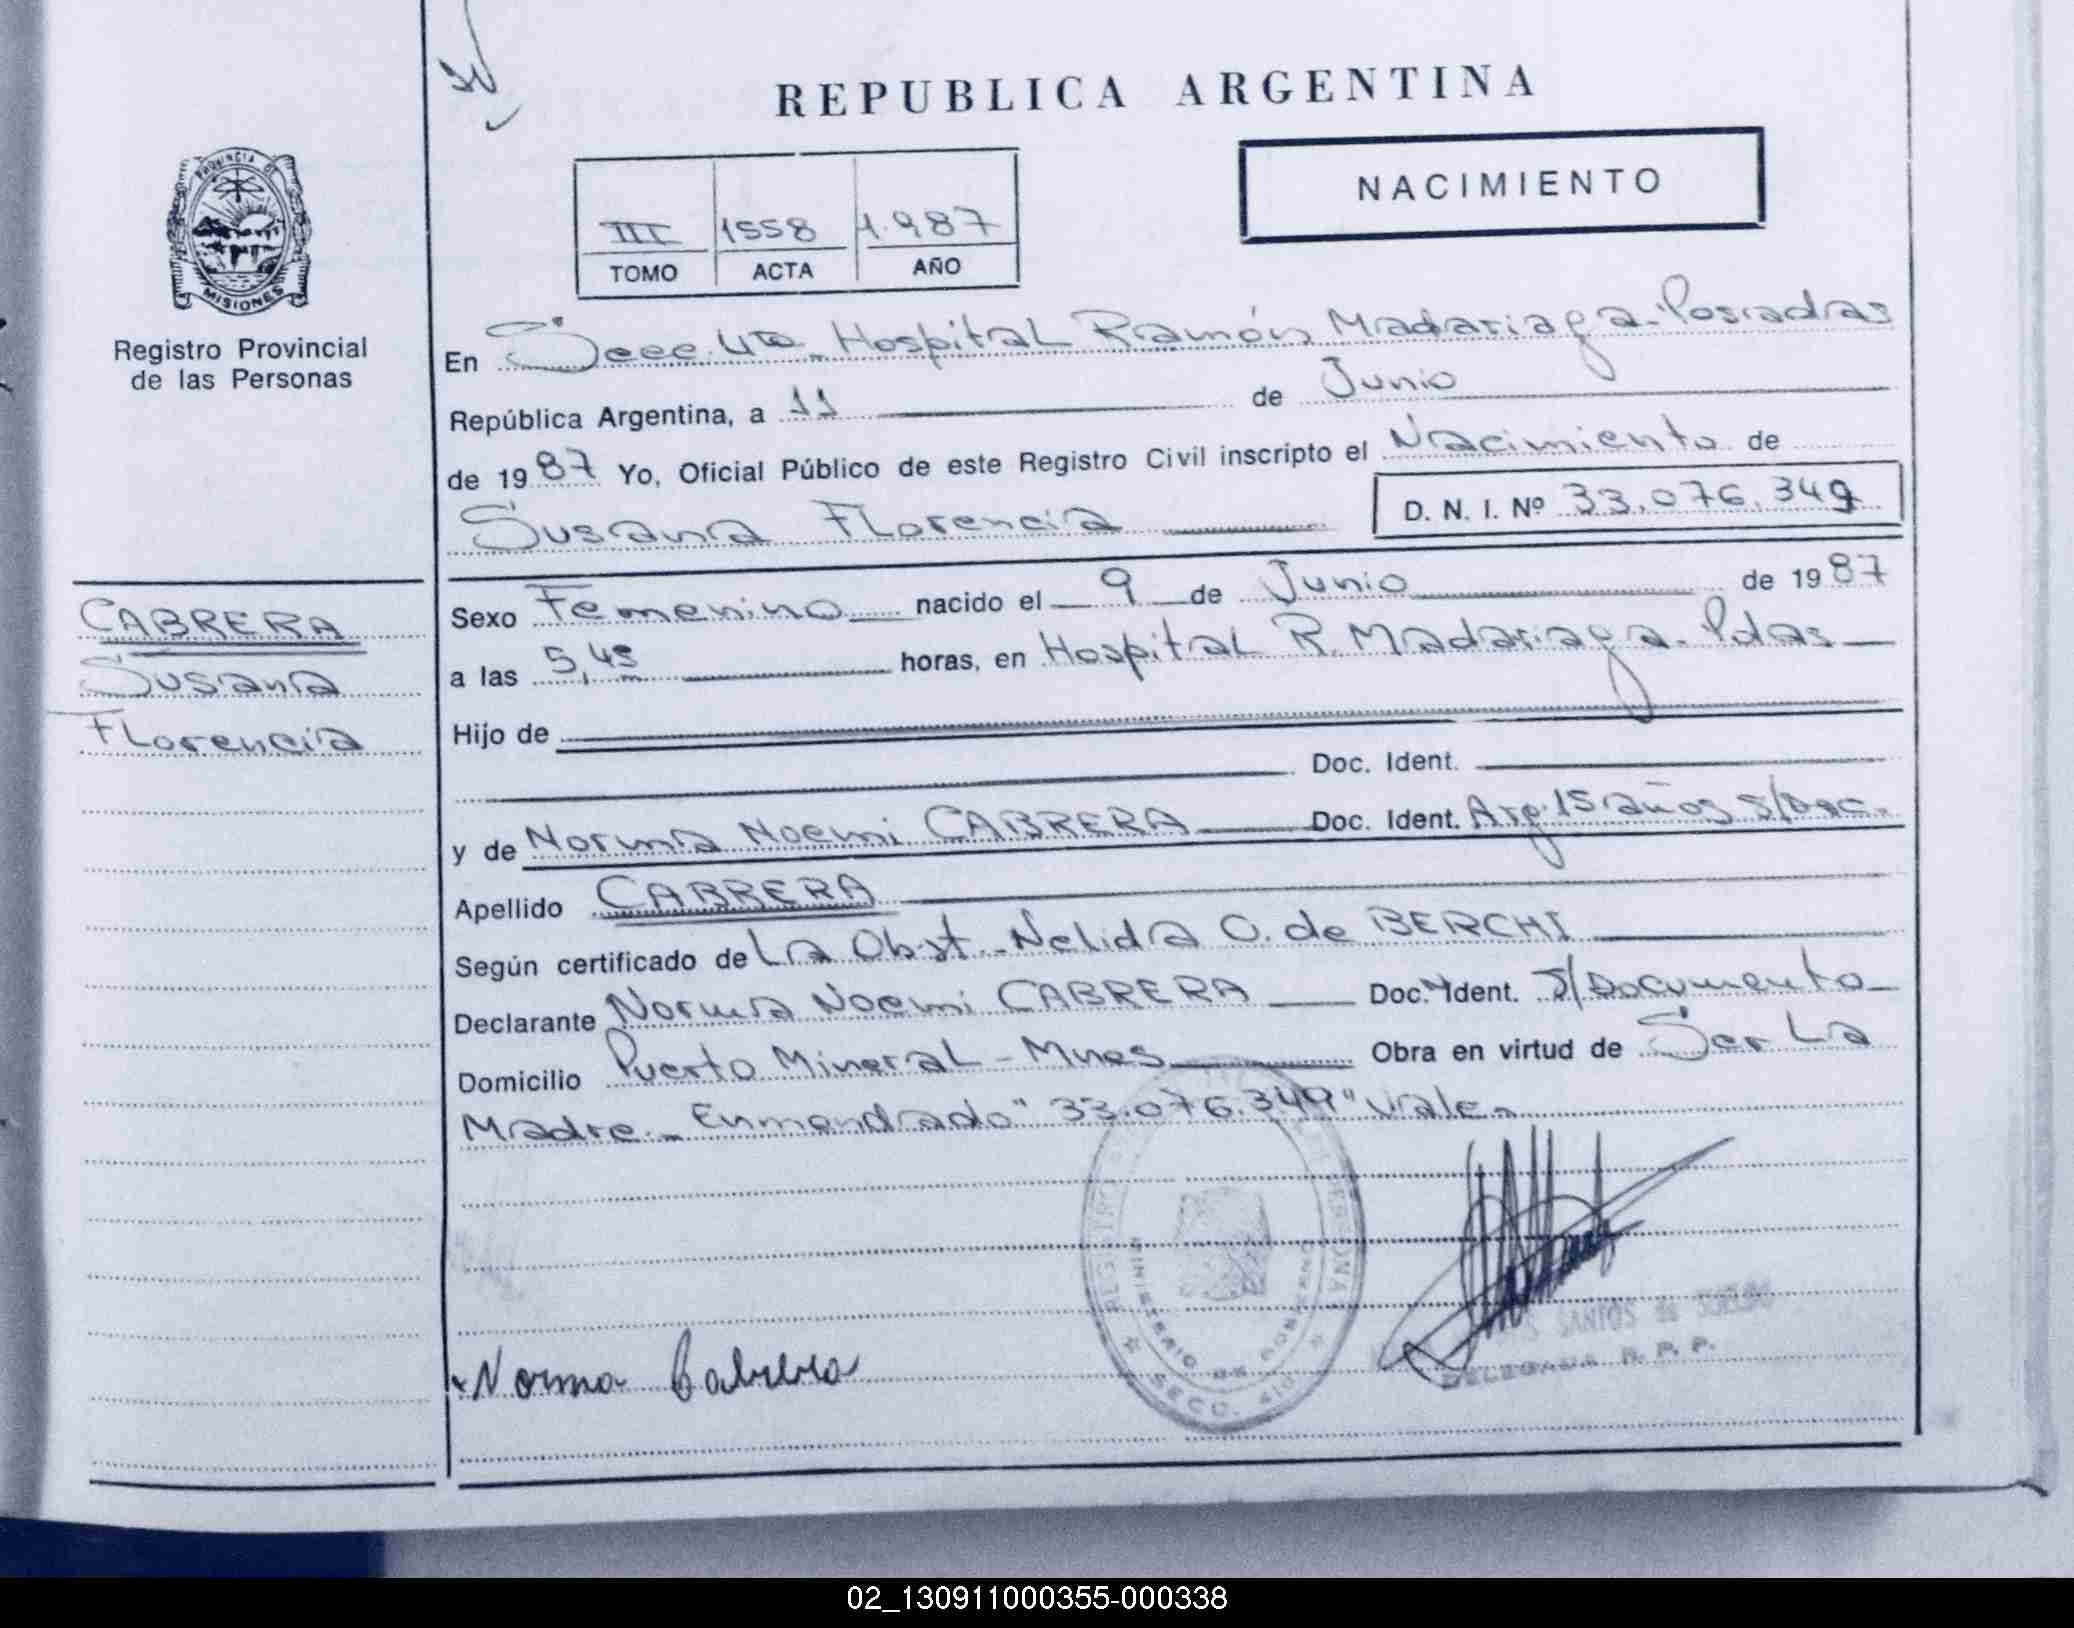 REPUBLICA ARGENTINA
NACIMIENTO
III 1558 1.987
TOMO ACTA AÑO
PROVINCIA DE
MISIONES
Registro Provincial
de las Personas
En Secc. 4ta. Hospital Ramón Madariaga - Posadas
República Argentina, a 11 de Junio
de 1987 Yo, Oficial Público de este Registro Civil inscripto el Nacimiento de
Susana Florencia D. N. I. Nº 33.076.349
CABRERA
Susana
Florencia
Sexo Femenino nacido el 9 de Junio de 1987
a las 5,45 horas, en Hospital R. Madariaga - Pdas
Hijo de
Doc. Ident.
y de Norma Noemi CABRERA Doc. Ident. Arg. 15 años S/Doc.
Apellido CABRERA
Según certificado de La Obst. Nelida O. de BERCHI
Declarante Norma Noemi CABRERA Doc. Ident. S/Documento
Domicilio Puerto Mineral - Mnes Obra en virtud de Ser La
Madre. - Enmendado "33.076.349" Vale.
REGISTRO PERSONAS
MINISTERIO DE GOBIERNO
SECC.
SANTOS de
DELEGADA R. P. P.
Norma Cabrera
02_130911000355-000338